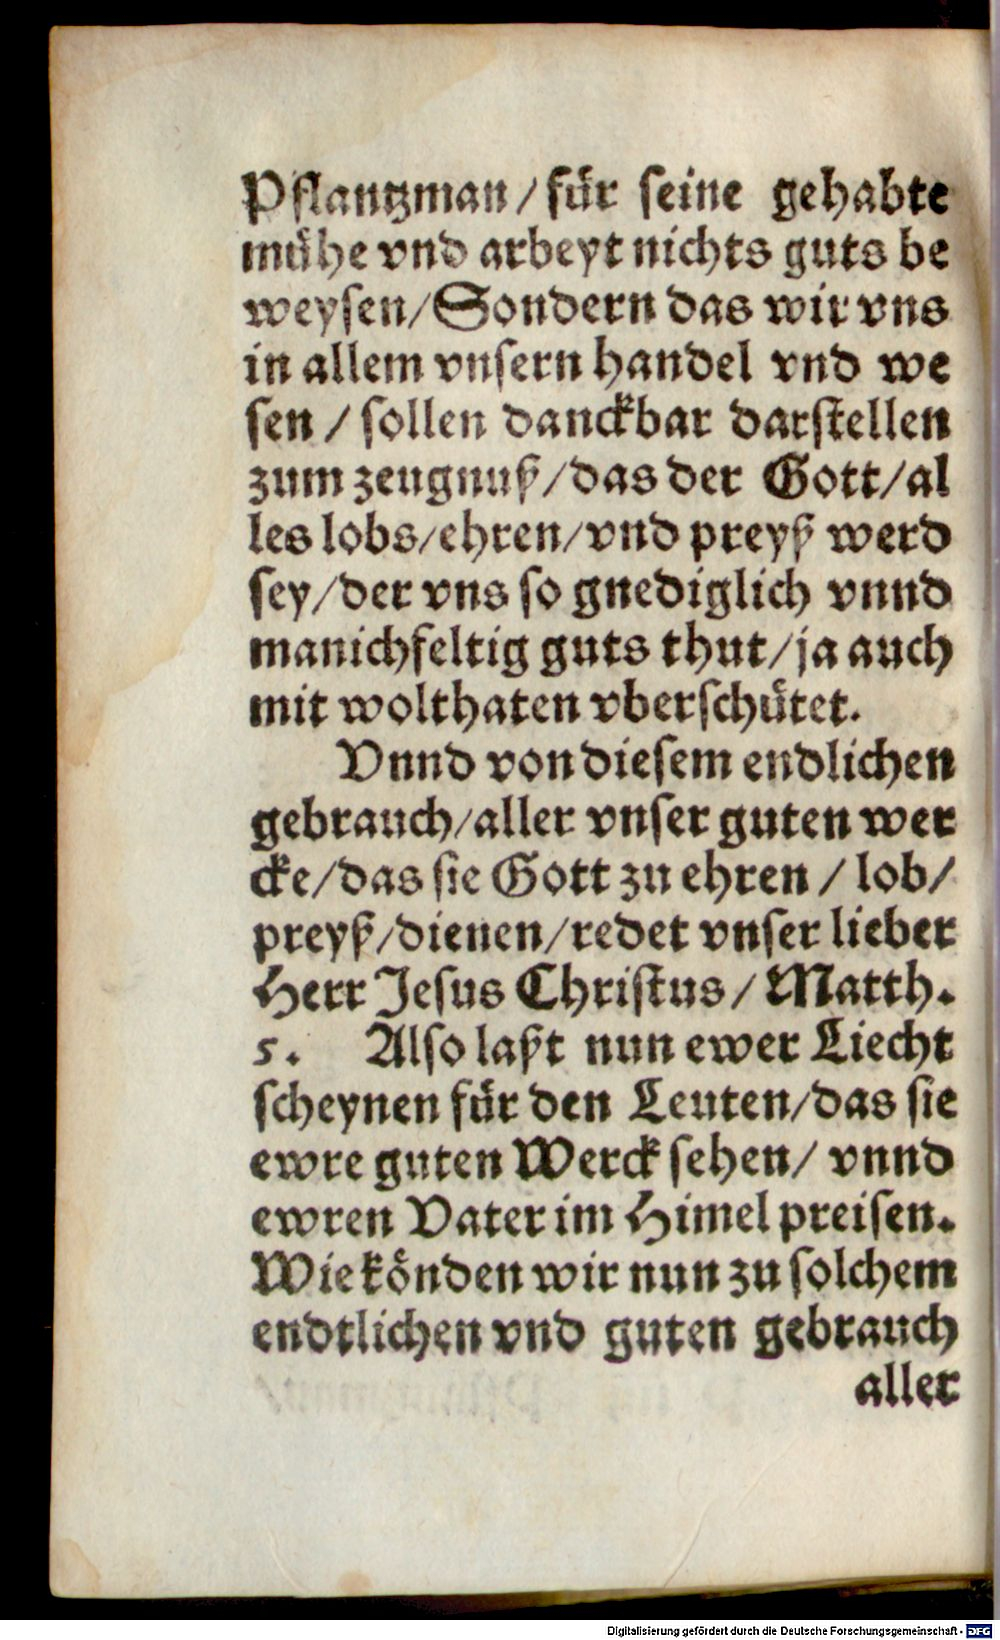 Pflantzman / für seine gehabte
mühe vnd arbeyt nichts guts be
weysen/Sondern das wir vns
in allem vnsern handel vnd we
sen / sollen danckbar darstellen
zum zeugnuß/das der Gott/al
les lobs/ehren/vnd preyß werd
sey/der vns so gnediglich vnnd
manichfeltig guts thut/ja auch
mit wolthaten vberschütet.
Vnnd von diesem endlichen
gebrauch/aller vnser guten wer
cke/das sie Gott zu ehren / lob/
preyß/dienen/redet vnser lieber
Herr Jesus Christus / Matth.
5. Also laßt nun ewer Liecht
scheynen für den Leuten/das sie
ewre guten Werck sehen/ vnnd
ewren Vater im Himel preisen.
Wie könden wir nun zu solchem
endtlichen vnd guten gebrauch
aller
Digitalisierung gefördert durch die Deutsche Forschungsgemeinschaft - DFG